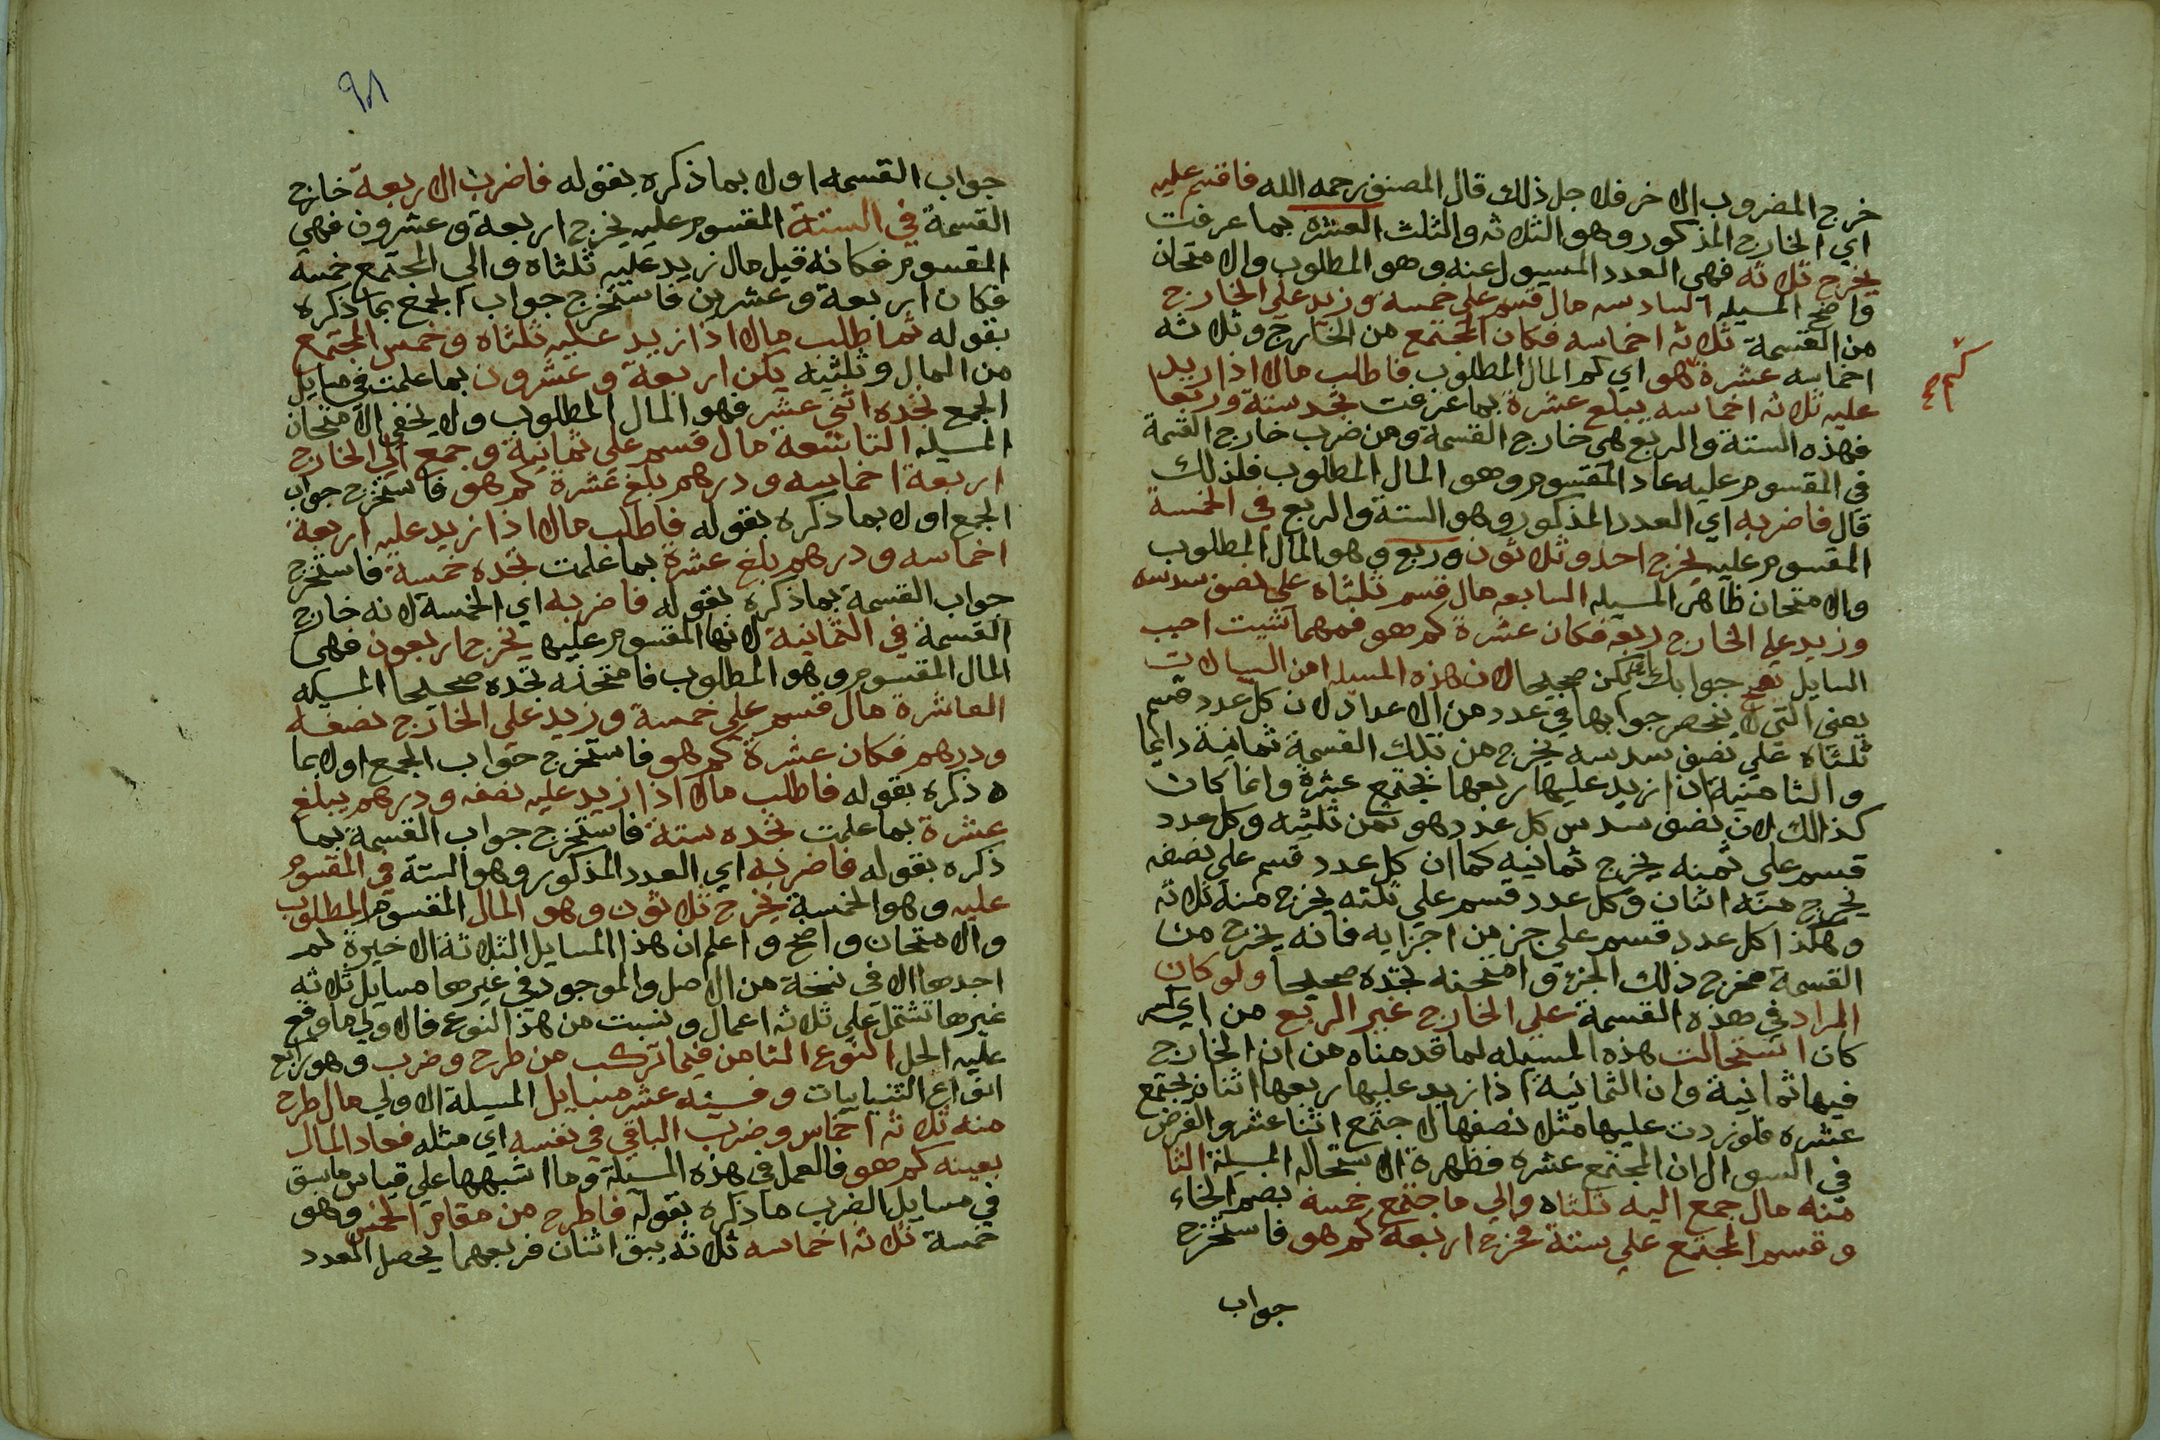 خرج المضروب الاخر فلاجل ذلك قال المصنف رحمه الله فاقسم عليه
اي الخارج المذكور وهو الثلاثه والثلث العشره بما عرفت
يخرج ثلاثه فهي العدد المسيول عنه وهو المطلوب والامتحان
واضح المسيله السادسه مال قسم علي خمسه وزيد علي الخارج
من القسمة ثلاثه اخماسه فكان المجتمع من الخارج وثلاثه
اخماسه عشرة كم هو اي كم المال المطلوب فاطلب مالا اذا زيد
عليه ثلاثه اخماسه يبلغ عشرة بما عرفت تجد ستة وربعا
فهذه الستة والربع هي خارج القسمة ومن ضرب خارج القسمة
في المقسوم عليه عاد المقسوم وهو المال المطلوب فلذلك
قال فاضربه اي العدد المذكور وهو الستة والربع في الخمسة
المقسوم عليه يخرج احد وثلاثون وربع وهو المال المطلوب
والامتحان ظاهر المسيله السابعه مال قسم ثلثاه علي نصف سدسه
وزيد علي الخارج ربعه فكان عشرة كم هو فمهما شيت اجب
السايل يقع جوابك يكن صحيحا لان هذه المسيله من السيالات
يعني التي لا ينحصر جوابها في عدد من الاعداد لان كل عدد قسم
ثلثاه علي نصف سدسه يخرج من تلك القسمة ثمانية دايما
والثامنية اذا زيد عليها ربعها تجتمع عشرة وانما كان
كذالك لان نصف سدس كل عدد هو ثمن ثلثيه وكل عدد
قسم علي ثمنه يخرج ثمانيه كما ان كل عدد قسم علي نصفه
يخرج منه اثنان وكل عدد قسم علي ثلثه يخرج منه ثلاثه
وهكذا كل عدد قسم علي جز من اجزايه فانه يخرج من
القسمة مخرج ذلك الجزء وامتحنه تجده صحيحا ولو كان
المراد في هذه القسمة علي الخارج غير الربع من اي كسر
كان استحالت هذه المسيله لما قدمناه من ان الخارج
فيها ثمانية وان الثمانية اذا زيد عليها ربعها اثنان يجتمع
عشره فلو زدت عليها مثل نصفها لاجتمع اثنا عشر والفرض
في السوال ان المجتمع عشره فظهرة الاستحاله المسيلة الثا
منه مال جمع اليه ثلثاه والي ما جتمع خمسه بضم الخاء
وقسم المجتمع علي ستة فخرج اربعة كم هو فاستخرج
جواب
كم
٩٨
جواب القسمه اولا بما ذكره بقوله فاضرب الاربعة خارج
القسمة في الستة المقسوم عليه يخرج اربعة وعشرون فهي
المقسوم فكانه قيل مال زيد عليه ثلثاه والي المجتمع خمسه
فكان اربعة وعشرين فاستخرج جواب الجمع بما ذكره
بقوله ثم اطلب مالا اذا زيد عليه ثلثاه وخمس المجتمع
من المال وثلثيه يكن اربعة وعشرون بما علمت في مسايل
الجمع تجده اثني عشر فهو المال المطلوب ولا يخفي الامتحان
المسيله التاسعة مال قسم علي ثمانية وجمع الي الخارج
اربعة اخماسه ودرهم بلغ عشرة كم هو فاستخرج جواب
الجمع اولا بما ذكره بقوله فاطلب مالا اذا زيد عليه اربعة
اخماسه ودرهم بلغ عشرة بما علمت تجده خمسة فاستخرج
جواب القسمة بما ذكره بقوله فاضربه اي الخمسة لانه خارج
القسمة في الثمانية لانها المقسوم عليها يخرج اربعون فهي
المال المقسوم وهو المطلوب فامتحنه تجده صحيحا المسيله
العاشرة مال قسم علي خمسة وزيد علي الخارج نصفه
ودرهم فكان عشرة كم هو فاستخرج جواب الجمع اولا بما
ه ذكره بقوله فاطلب مالا اذا زيد عليه نصفه ودرهم يبلغ
عشرة بما علمت تجده ستة فاستخرج جواب القسمة بما
ذكره بقوله فاضربه اي العدد المذكور وهو الستة في المقسوم
عليه وهو الخمسة يخرج ثلاثون وهو المال المقسوم المطلوب
والامتحان واضح واعلم ان هذا المسايل الثلاثة الاخيرة لم
اجدها الا في نسخة من الاصل والموجود في غيرها مسايل ثلاثه
غيرها تشتمل علي ثلاثه اعمال ونسبت من هذ النوع فالاولي ما وقع
عليه الحل النوع الثامن فيما تركب من طرح وضرب وهو رابع
انواع الثنياييات وفيه عشر مسايل المسيلة الاولي مال طرح
منه ثلاثه اخماس وضرب الباقي في نفسه اي مثله فعاد المال
بعينه كم هو فالعمل في هذه المسئلة وما اشبهها علي قياس ما سبق
في مسايل الضرب ما ذكره بقوله فاطرح من مقام الخمس وهو
خمسة ثلاثه اخماسه ثلاثه يبق اثنان فربعهما يحصل العدد